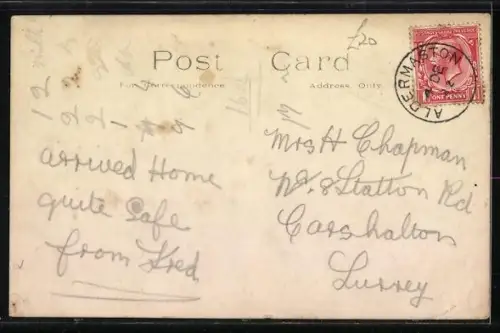 £20
Post Card
For Correspondence
Address Only.
ALDERMASTON
DE
ONE PENNY
arrived Home
quite Safe
from Fred
Mrs H Chapman
No 8 Statton Rd
Carshalton
Surrey